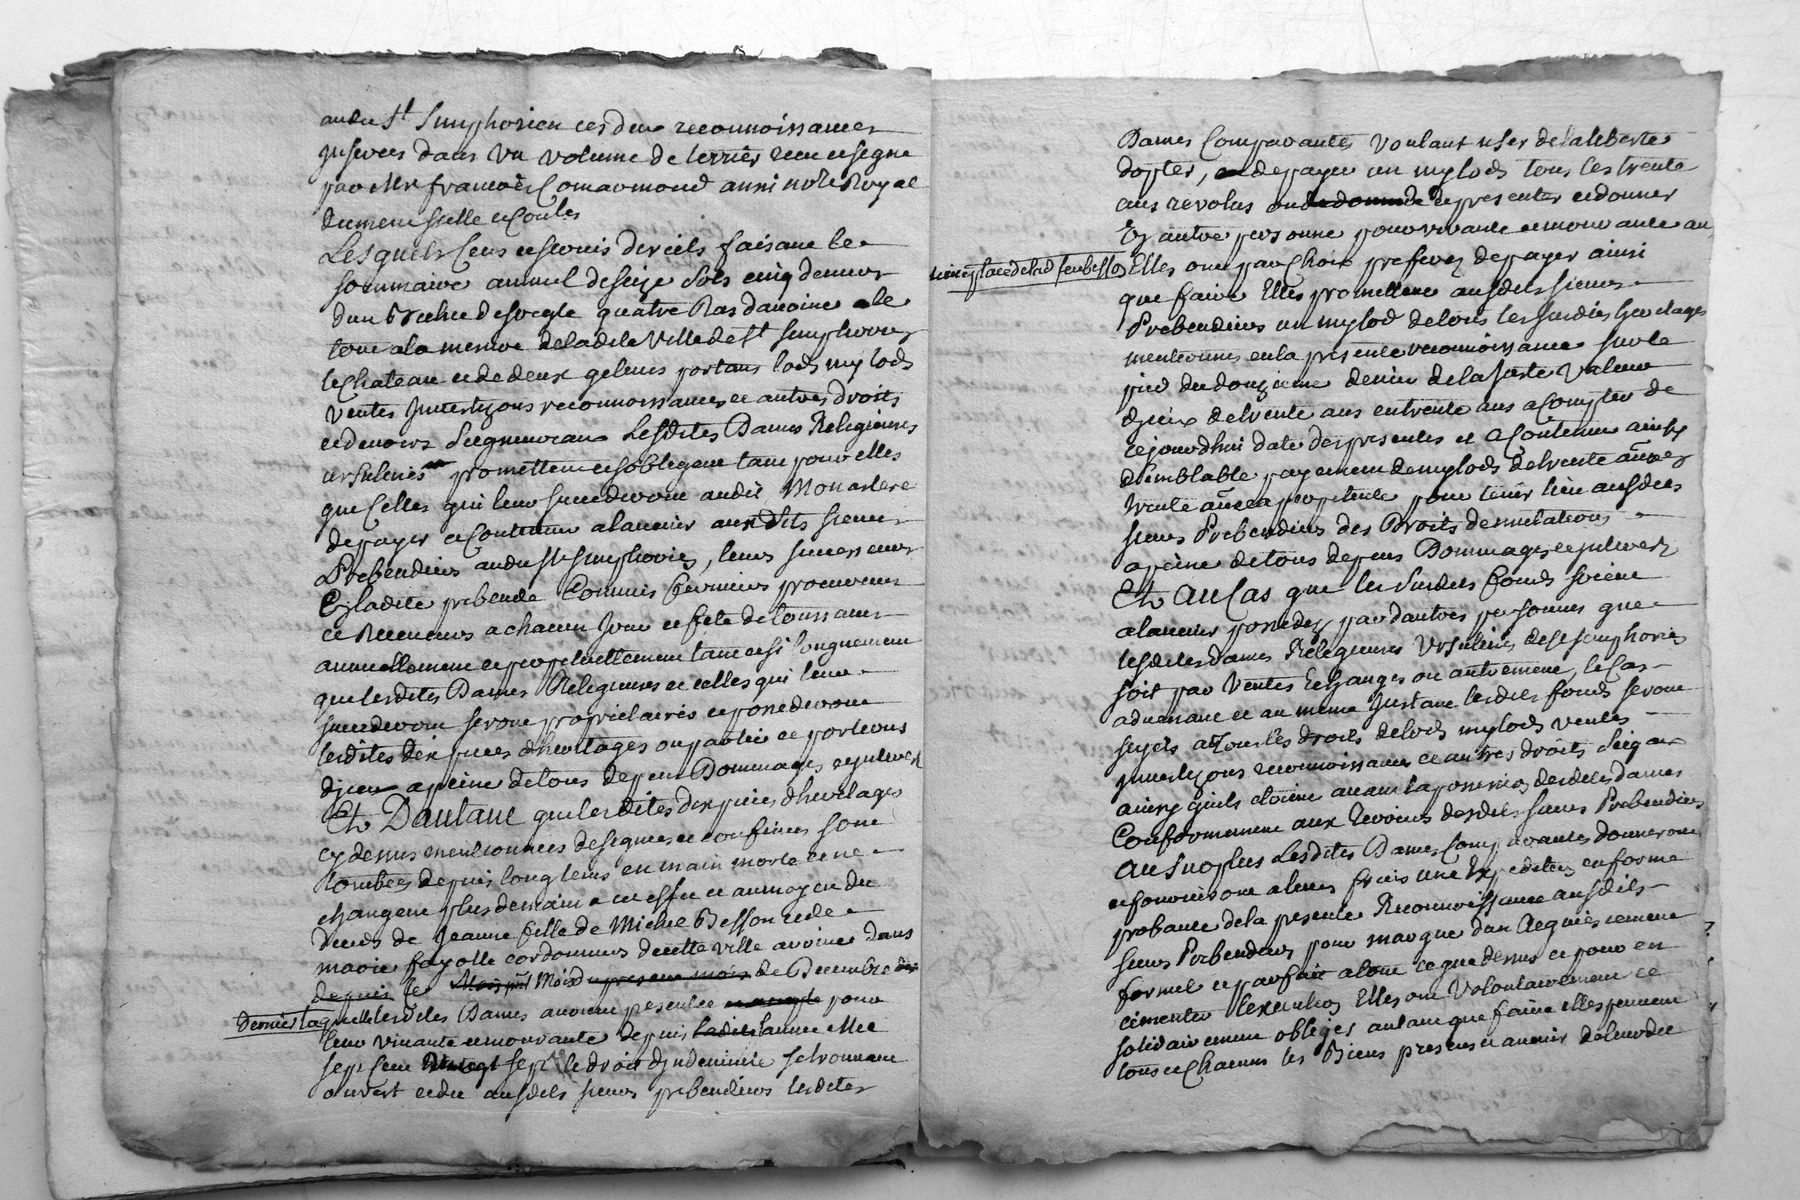 audit St Simphorien ces deux reconnoissances
Inserees dans un volume de terrier receu et signe
par Mre françois Comarmond aussi nore Royal
dumeme scelle et Coules
Lesquels Cens et servis directs faisant le
sommaire annuel de seize sols cinq deniers
dun bichet de soegle quatre Ras davoine le
tout a la mesure de ladite Ville de St Simphorien
le Chateau et de deux gelines portans lods my lods
ventes Investizons reconnoissances et autres droits
et devoirs Seigneuriaux Lesdites Dames Religieuses
ursulines promettent et sobligent tant pour elles
que Celles qui leur succederont audit Monastere
de payer et Continuer a lavenir aux dits sieurs
Prebendiers audit St Simphorien, leurs successeurs
En ladite prebende Commis fermiers procureurs
et Receveurs a chacun Jour et fete de toussaints
annuellement et perpetuellement tant et si longuement
que lesdites Dames Religieuses et celles qui leur
succederont seront proprietaires et possederont
lesdites dix pieces dheritages ou partie et portions
diceux a peine de tous depens Dommages et jnterets
Et Dautant que lesdites dix pieces dheritages
cy dessus mentionnées designees et confinees sont
tombees depuis longtems en main morte et ne
changent plus de main a cet effet et au moyen du
deces de Jeanne fille de Michel Besson et de
marie fayolle cordonniers de cette ville avoine dans
depuis le Mois de present mois de Decembre
dernier laquelle lesdites Dames avoient presentee pour
leur vivante et mourante depuis ladite lannee Mil
sept cent vingt sept le droit dindemnité se trouvant
ouvert et du ausdits sieurs prebendiers lesdites
Dames Comparantes voulant user de la liberte
dopter, ou de payer un mylods tous les trente
ans revolus ou de presenter et donner
Une autre personne pour vivante et mourante au
lieu et place de lad feu besson Elles ont par Choix preferez de payer ainsi
que faire Elles promettent ausdits sieurs
Prebendiers un mylod de tous les susdits heritages
mentionnes en la presente reconnoissance sur le
pied du douzieme denier de la Juste valeur
diceux de trente ans en trente ans a Compter de
cejourdhui date des presentes et a Continuer ainsy
semblable payement de mylods de trente années
trente années a perpetuite pour tenir lieu ausdits
sieurs Prebendiers des Droits de mutations
a peine de tous depens Dommages et jnterets
Et au Cas que les susdits fonds soient
a lavenir possedez par dautres personnes que
lesdites dames Religieuses Ursulines de St Simphorien
soit par Ventes Echanges ou autrement, le Cas
advenant et au meme Instant lesdits fonds seront
sujets a tous les droits de lods mylods ventes
Investizons reconnoissances et autres droits Seigaux
ainsy quils etoient avant la possession desdites dames
Conformement aux Terriers desdits sieurs Prebendiers
Au Surplus Lesdites Dames Comparantes donneront
et fourniront a leurs frais une Expedition en forme
probante de la presente Reconnoissance ausdits
sieurs Prebendiers pour marque dun Acquiescement
formel et parfait a tout ce que dessus et pour en
cimenter lexecution Elles ont volontairement et
solidairement obligez autant que faire elles peuvent
tous et Chacuns les Biens presens et avenir de leurdit